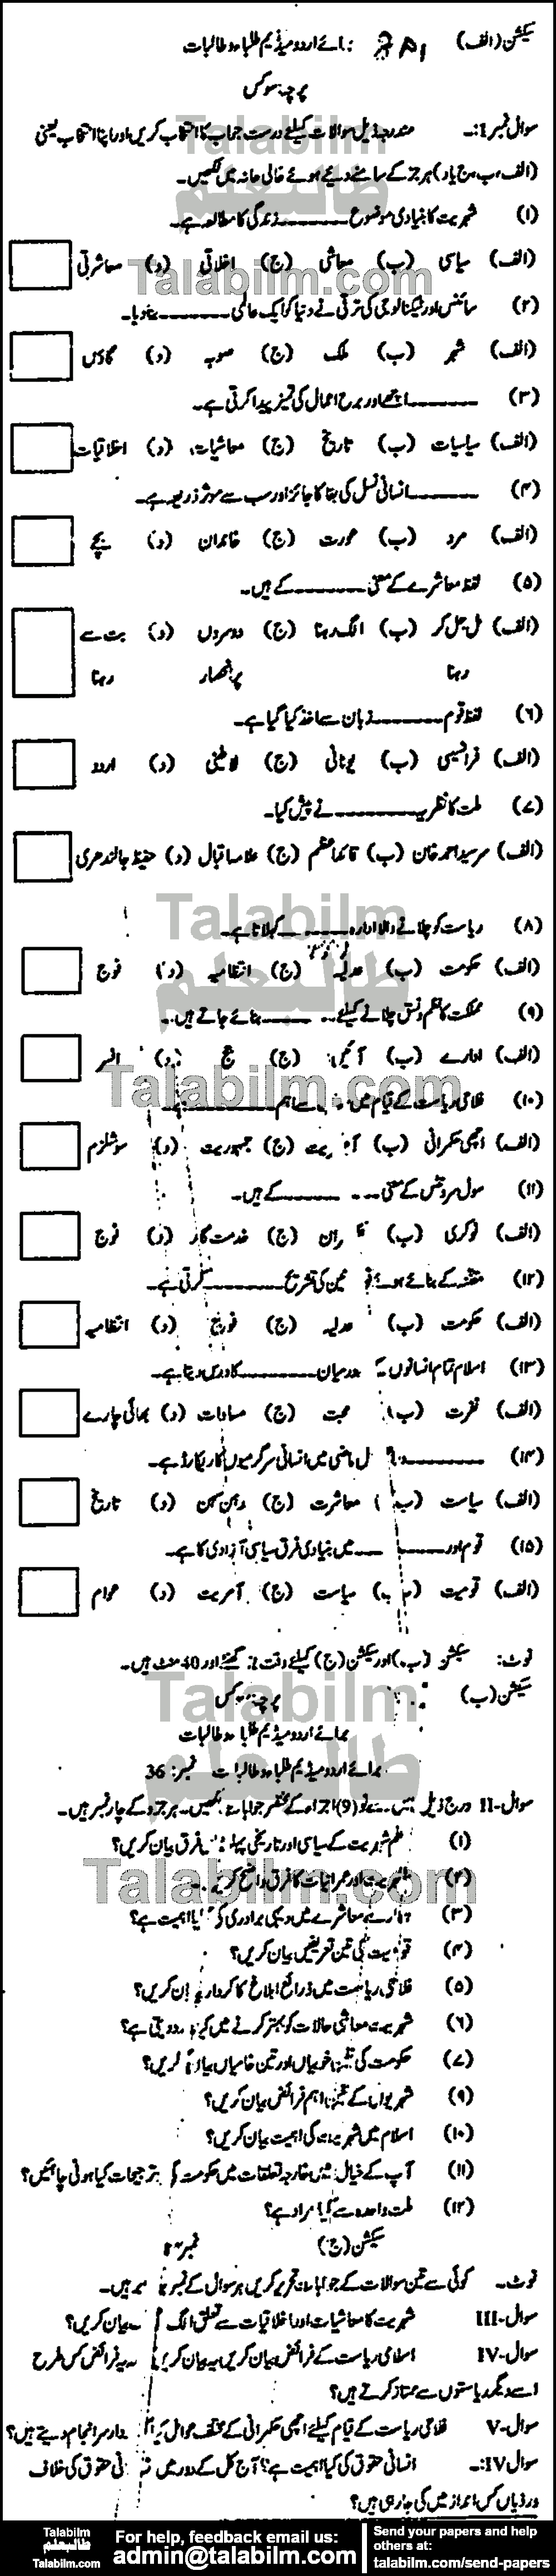 سیکشن (الف) برائے اردو میڈیم طلباء و طالبات
پرچہ سوکس
سوال نمبر 1:۔ مندرجہ ذیل سوالات کیلئے درست جواب کا انتخاب کریں اور اپنا انتخاب یعنی
(الف، ب، ج یا د) ہر جز کے سامنے دیئے ہوئے خالی خانہ میں لکھیں۔
(۱) شہریت کا بنیادی موضوع ـــــــــ زندگی کا مطالعہ ہے۔
(الف) سیاسی (ب) معاشی (ج) اخلاقی (د) معاشرتی
(۲) سائنس اور ٹیکنالوجی کی ترقی نے دنیا کو ایک عالمی ـــــــــ بنا دیا۔
(الف) شہر (ب) ملک (ج) صوبہ (د) گاؤں
(۳) ـــــــــ اچھے اور برے اعمال کی تمیز پیدا کرتی ہے۔
(الف) سیاسیات (ب) تاریخ (ج) معاشیات (د) اخلاقیات
(۴) ـــــــــ انسانی نسل کی بقا کا جائز اور سب سے موثر ذریعہ ہے۔
(الف) مرد (ب) عورت (ج) خاندان (د) بچے
(۵) لفظ معاشرے کے معنی ـــــــــ کے ہیں۔
(الف) مل جل کر (ب) الگ رہنا (ج) دوسروں (د) بت سے
رہنا پر انحصار رہنا
(۶) لفظ قوم ـــــــــ زبان سے اخذ کیا گیا ہے۔
(الف) فرانسیسی (ب) یونانی (ج) لاطینی (د) اردو
(۷) ملت کا نظریہ ـــــــــ نے پیش کیا۔
(الف) سرسید احمد خان (ب) قائد اعظم (ج) علامہ اقبال (د) حفیظ جالندھری
(۸) ریاست کو چلانے والا ادارہ ـــــــــ کہلاتا ہے۔
(الف) حکومت (ب) عدلیہ (ج) انتظامیہ (د) فوج
(۹) مملکت کا نظم و نسق چلانے کیلئے ـــــــــ بنائے جاتے ہیں۔
(الف) ادارے (ب) آئین (ج) جج (د) افسر
(۱۰) فلاحی ریاست کے قیام میں سے اہم
(الف) اچھی حکمرانی (ب) (ج) جمہوریت (د) سوشلزم
(۱۱) سول سروس کے معنی ـــــــــ کے ہیں۔
(الف) نوکری (ب) (ج) خدمت گار (د) فوج
(۱۲) مقننہ کے بنائے ہوئے کی تشریح ـــــــــ کرتی ہے۔
(الف) حکومت (ب) عدلیہ (ج) فوج (د) انتظامیہ
(۱۳) اسلام تمام انسانوں کے درمیان ـــــــــ کا درس دیتا ہے۔
(الف) نفرت (ب) محبت (ج) مساوات (د) بھائی چارے
(۱۴) ـــــــــ ماضی میں انسانی سرگرمیوں کا ریکارڈ ہے۔
(الف) سیاست (ب) معاشرت (ج) رہن سہن (د) تاریخ
(۱۵) قوم اور ـــــــــ میں بنیادی فرق سیاسی آزادی کا ہے۔
(الف) قومیت (ب) سیاست (ج) آمریت (د) عوام
نوٹ: سیکشن (ب) اور سیکشن (ج) کیلئے وقت 2 گھنٹے اور 40 منٹ ہیں۔
سیکشن (ب) پرچہ سوکس
برائے اردو میڈیم طلباء و طالبات
برائے اردو میڈیم طلباء و طالبات نمبر: 36
سوال-II درج ذیل میں سے نو (9) اجزاء کے مختصر جوابات لکھیں۔ ہر جزو کے چار نمبر ہیں۔
(۱) علم شہریت کے سیاسی اور تاریخی پہلو میں فرق بیان کریں؟
(۲) شہریت اور عمرانیات کا فرق واضح کریں۔
(۳) ہمارے معاشرے میں دیہی برادری کی کیا اہمیت ہے؟
(۴) قومیت کی تین تعریفیں بیان کریں؟
(۵) فلاحی ریاست میں ذرائع ابلاغ کا کردار بیان کریں؟
(۶) شہریت معاشی حالات کو بہتر کرنے میں کیا مدد دیتی ہے؟
(۷) حکومت کی تین خوبیاں اور تین خامیاں بیان کریں؟
(۹) شہریوں کے تین اہم فرائض بیان کریں؟
(۱۰) اسلام میں شہریت کی اہمیت بیان کریں؟
(۱۱) آپ کے خیال میں خارجہ تعلقات میں حکومت کی ترجیحات کیا ہونی چاہئیں؟
(۱۲) ملت واحدہ سے کیا مراد ہے؟
سیکشن (ج) نمبر
نوٹ۔ کوئی سے تین سوالات کے جوابات تحریر کریں ہر سوال کے نمبر ہیں۔
سوال-III شہریت کا معاشیات اور اخلاقیات سے تعلق الگ الگ بیان کریں؟
سوال-IV اسلامی ریاست کے فرائض بیان کریں یہ بیان کریں کہ یہ فرائض کس طرح
اسے دیگر ریاستوں سے ممتاز کرتے ہیں؟
سوال-V فلاحی ریاست کے قیام کیلئے اچھی حکمرانی کے مختلف عوامل کیا کردار سرانجام دیتے ہیں؟
سوال-IV:۔ انسانی حقوق کی کیا اہمیت ہے؟ آج کل کے دور میں انسانی حقوق کی خلاف
ورزیاں کس انداز میں کی جا رہی ہیں؟
Talabilm
طالبعلم
Talabilm.com
For help, feedback email us:
admin@talabilm.com
Send your papers and help
others at:
talabilm.com/send-papers